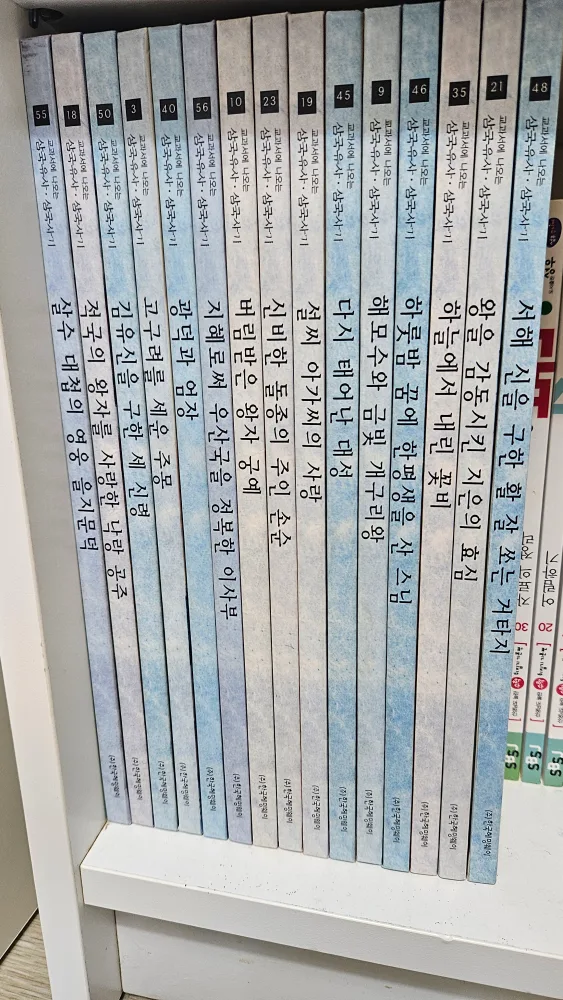 55
교과서에 나오는
삼국유사·삼국사기
살수 대첩의 영웅 을지문덕
(주)한국헤밍웨이
18
교과서에 나오는
삼국유사·삼국사기
적국의 왕자를 사랑한 낙랑 공주
(주)한국헤밍웨이
50
교과서에 나오는
삼국유사·삼국사기
김유신을 구한 세 신령
(주)한국헤밍웨이
3
교과서에 나오는
삼국유사·삼국사기
고구려를 세운 주몽
(주)한국헤밍웨이
40
교과서에 나오는
삼국유사·삼국사기
광덕과 엄장
(주)한국헤밍웨이
56
교과서에 나오는
삼국유사·삼국사기
지혜로써 우산국을 정복한 이사부
(주)한국헤밍웨이
10
교과서에 나오는
삼국유사·삼국사기
버림받은 왕자 궁예
(주)한국헤밍웨이
23
교과서에 나오는
삼국유사·삼국사기
신비한 돌종의 주인 손순
(주)한국헤밍웨이
19
교과서에 나오는
삼국유사·삼국사기
설씨 아가씨의 사랑
(주)한국헤밍웨이
45
교과서에 나오는
삼국유사·삼국사기
다시 태어난 대성
(주)한국헤밍웨이
9
교과서에 나오는
삼국유사·삼국사기
해모수와 금빛 개구리왕
(주)한국헤밍웨이
46
교과서에 나오는
삼국유사·삼국사기
하룻밤 꿈에 한평생을 산 스님
(주)한국헤밍웨이
35
교과서에 나오는
삼국유사·삼국사기
하늘에서 내린 꽃비
(주)한국헤밍웨이
21
교과서에 나오는
삼국유사·삼국사기
왕을 감동시킨 지은의 효심
(주)한국헤밍웨이
48
교과서에 나오는
삼국유사·삼국사기
서해 신을 구한 활 잘 쏘는 거타지
(주)한국헤밍웨이
30
20